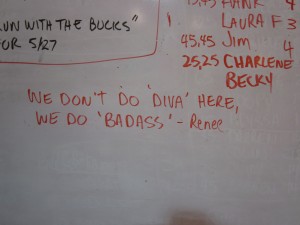 RUN WITH THE BUCKS"
FOR 5/27
FRANK 4
LAURA F 3
45,45 Jim 4
25,25 CHARLENE
BECKY
WE DON'T DO 'DIVA' HERE,
WE DO 'BADASS' - Renee